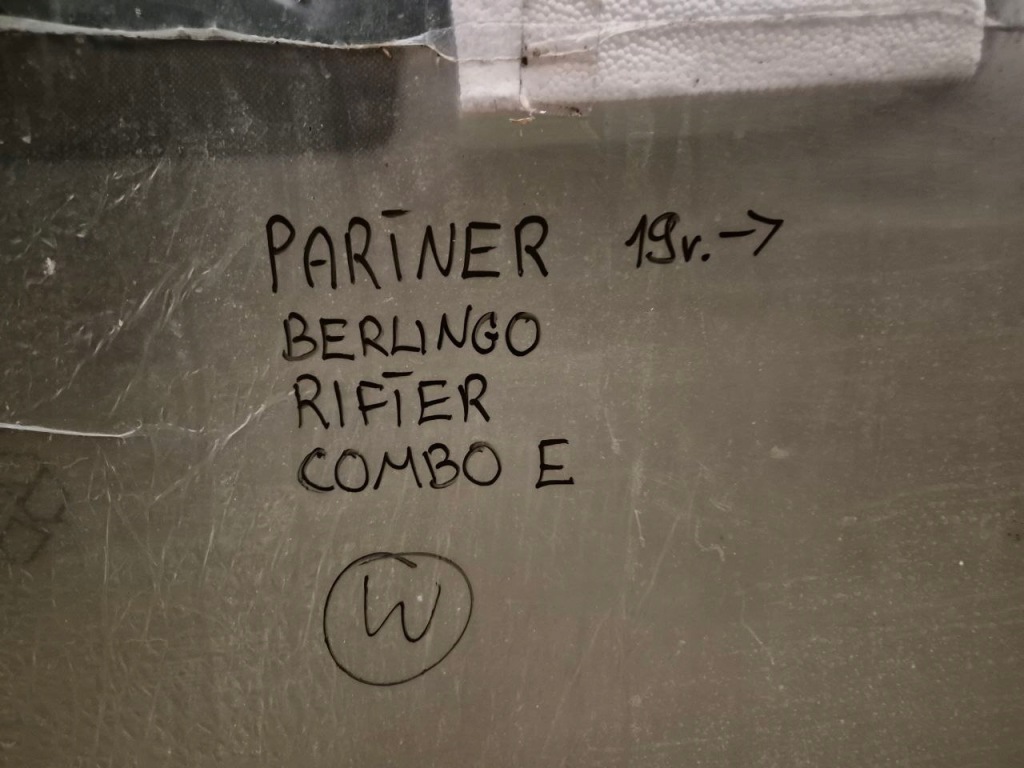 PARTNER 19r. →
BERLINGO
RIFTER
COMBO E
W